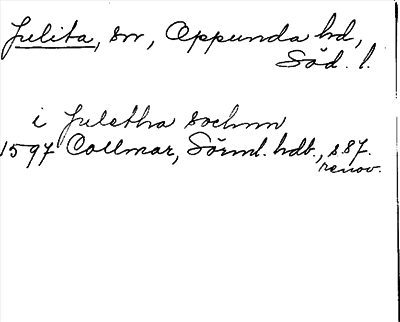 Julita, sn, Oppunda hd,
Söd. l.
i Juletha sochnn
1597 Collmar, Sörml. hdb., s 87.
renov.